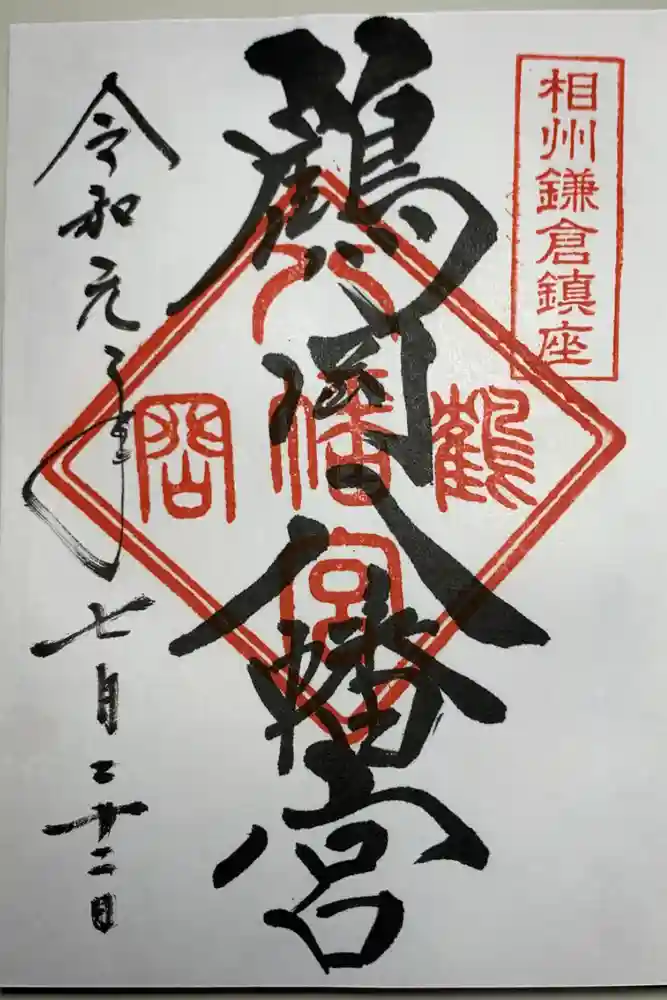 相州鎌倉鎮座
鶴岡八幡宮
鶴岡八幡宮
令和元年七月廿二日